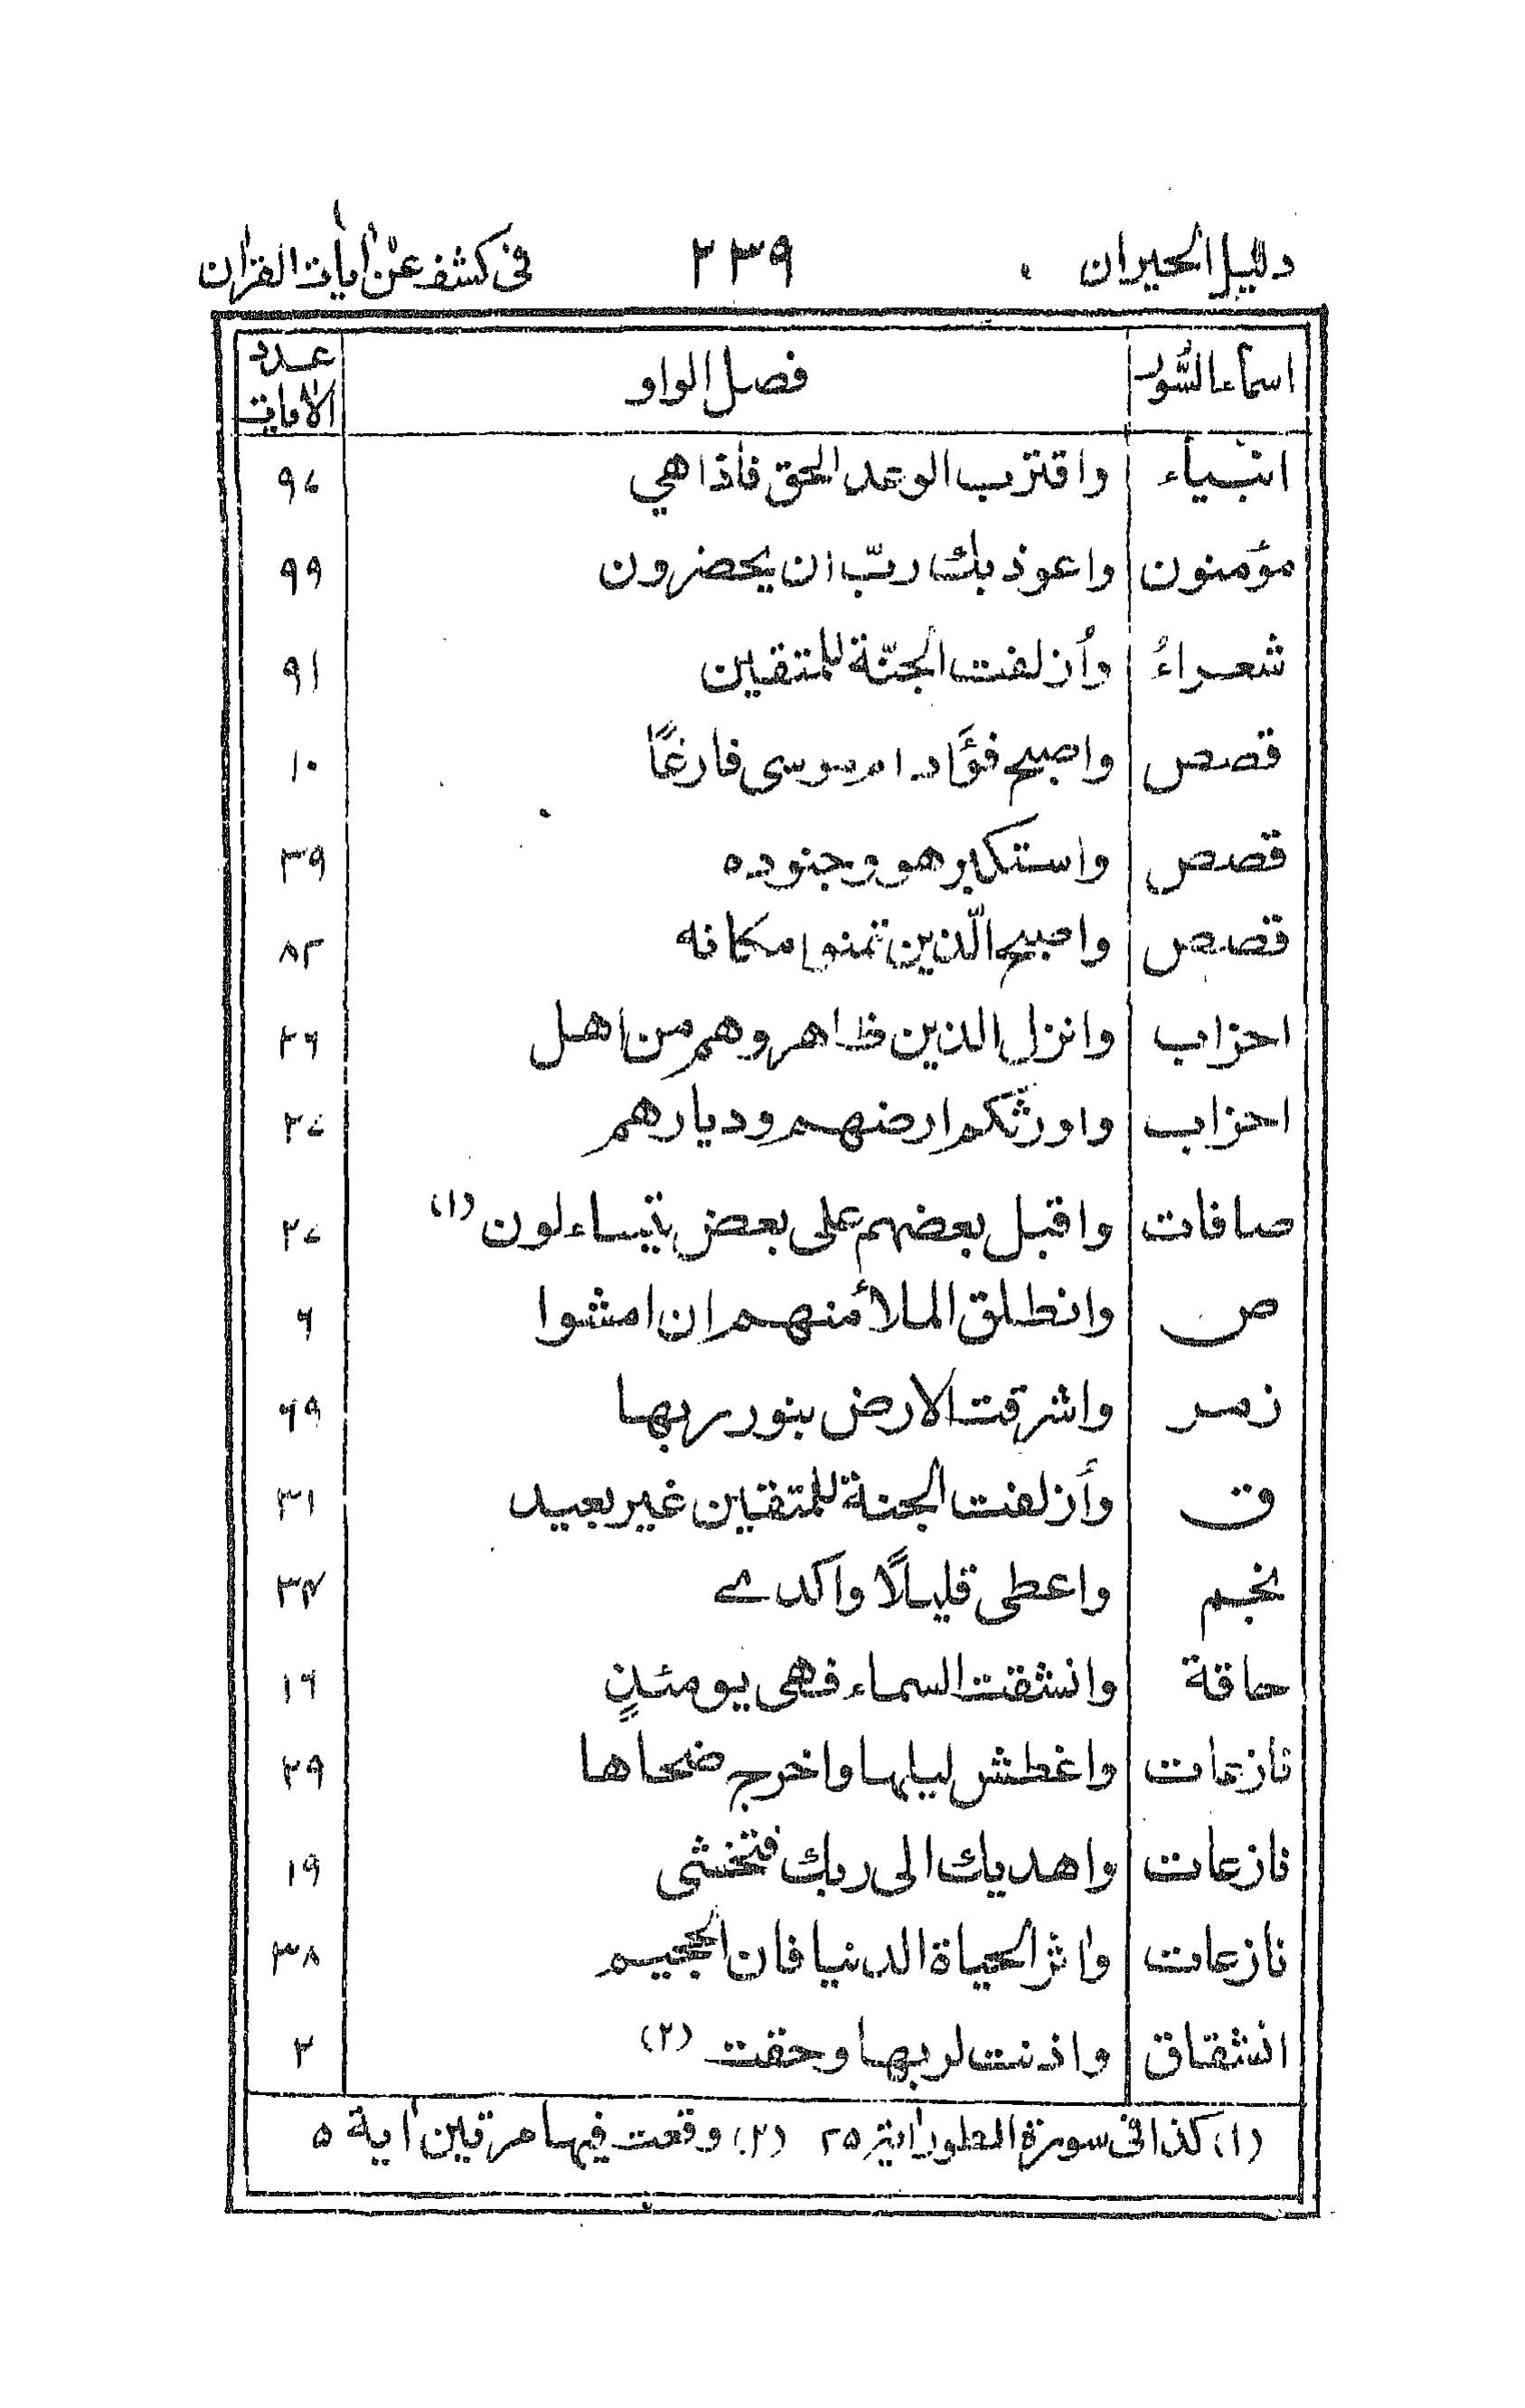 دليل الحيران ٢٣٩ فى كشف عن اٰيات القراٰن
اسماء السُّور فصل الواو عدد الاٰيات
انبياء واقترب الوعد الحق فاذا هي ٩٧
مؤمنون واعوذ بك ربّ ان يحضرون ٩٩
شعراءُ وأزلفت الجنّة للمتقين ٩١
قصص واصبح فؤَاد ام موسى فارغًا ١٠
قصص واستكبر هو وجنوده ٣٩
قصص واصبح الّذين تمنوا مكانه ٨٢
احزاب وانزل الذين ظاهروهم من اهل ٢٦
احزاب واورثَكم ارضهم وديارهم ٢٧
صافات واقبل بعضهم على بعض يتساءلون (١) ٢٧
ص وانطلق الملأ منهم ان امشوا ٦
زمر واشرقت الارض بنور ربها ٦٩
ق وأزلفت الجنة للمتقين غير بعيد ٣١
نجم واعطى قليلًا واكدے ٣٤
حاقة وانشقت السماء فهى يومئذٍ ١٦
نازعات واغطش ليلها واخرج ضحاها ٢٩
نازعات واهديك الى ربك فتخشى ١٩
نازعات واٰثر الحياة الدنيا فان الجحيم ٣٨
انشقاق واذنت لربها وحقت (٢) ٢
(١) كذا فى سورة الطور اٰية ٢٥ (٢) وقعت فيها مرتين اٰية ٥